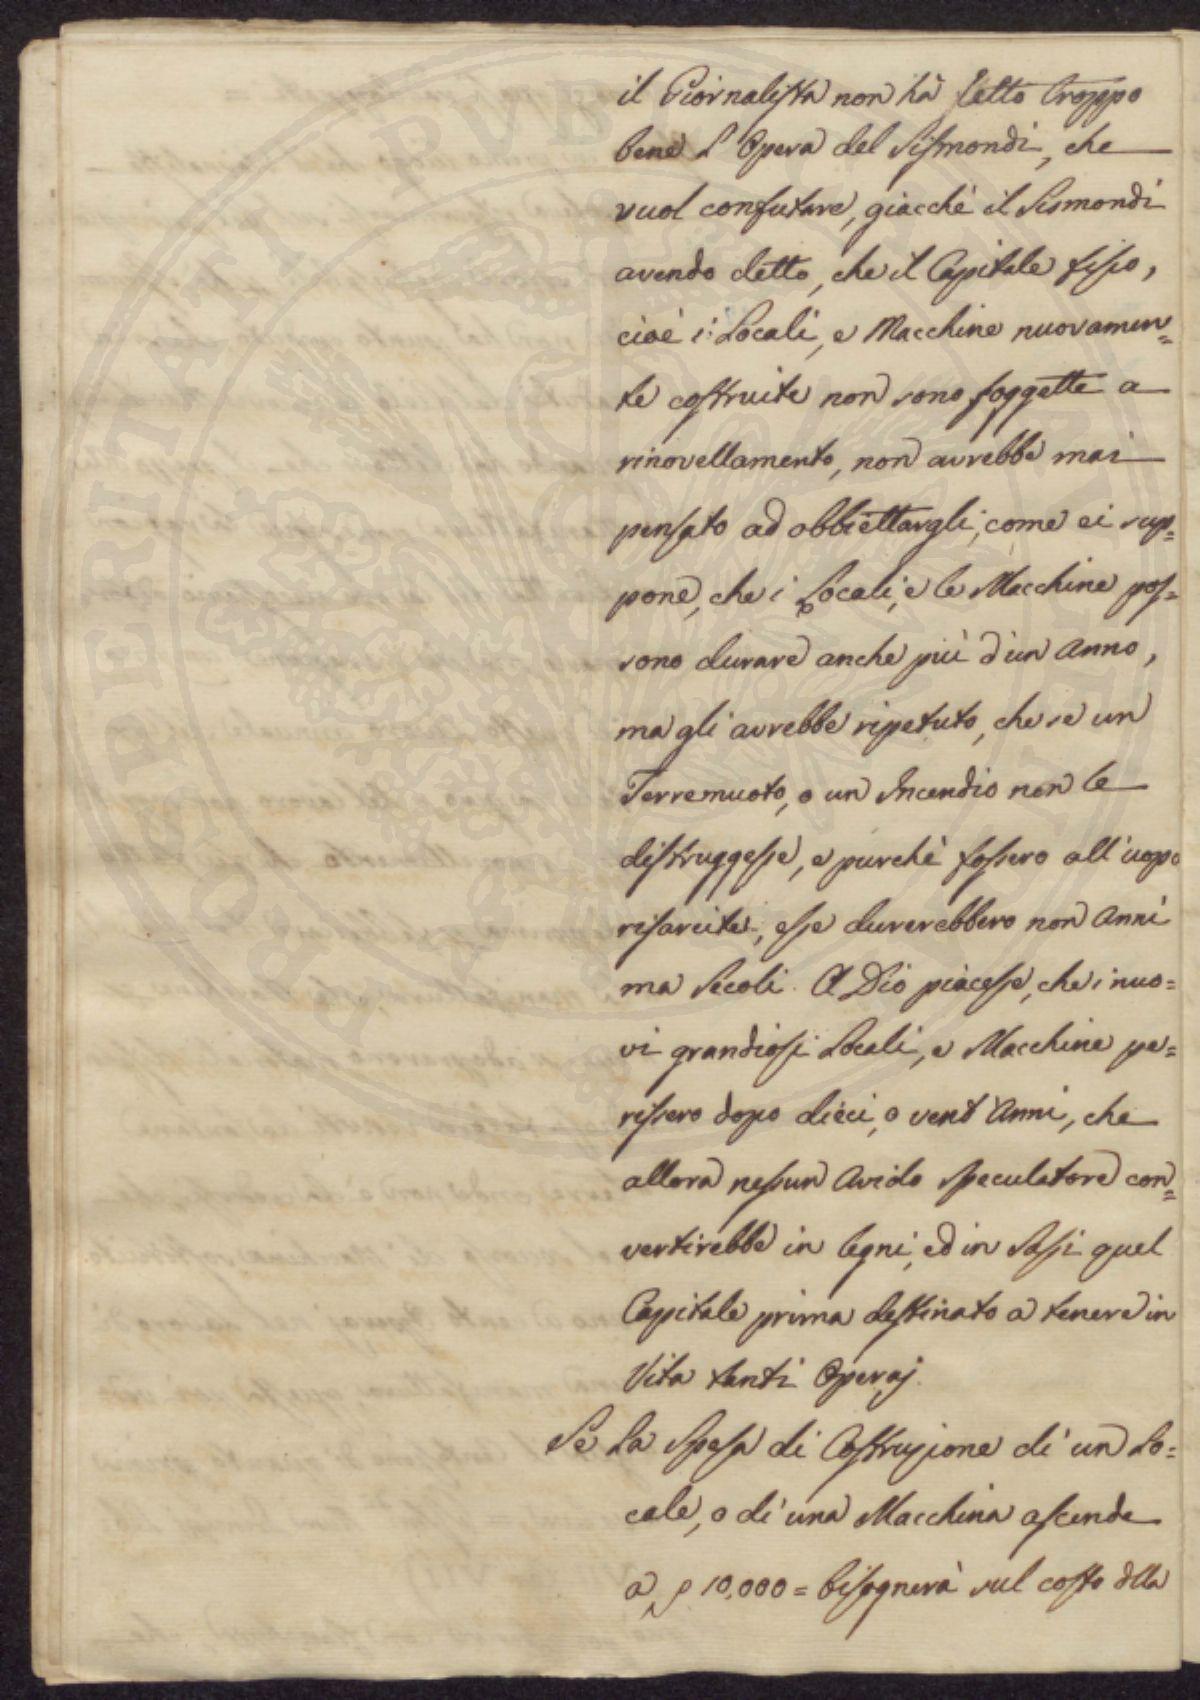 il Giornalista non hà letto troppo
bene L'Opera del Sismondi, che
vuol confutare, giacchè il Sismondi
avendo detto, che il Capitale fisso,
cioè i Locali, e Macchine nuovamen=
te costruite non sono soggette a
rinovellamento, non avrebbe mai
pensato ad obbiettargli, come ei sup=
pone, che i Locali, e le Macchine pos=
sono durare anche più d'un anno,
ma gli avrebbe ripetuto, che se un
Terremuoto, o un Incendio non le
distruggesse, e purchè fossero all'uopo
risarcite, esse durerebbero non Anni
ma Secoli. A Dio piacesse, che i nuo=
vi grandiosi Locali, e Macchine pe=
rissero dopo dieci, o vent'Anni, che
allora nessun Avido speculatore con=
vertirebbe in legni, ed in Sassi quel
Capitale prima destinato a tenere in
Vita tanti Operaj.
Se La Spesa di Costruzione di un Lo=
cale, o di una Macchina ascende
a 10,000 = bisognerà sul costo della
PROPERITATI PVBLICAE